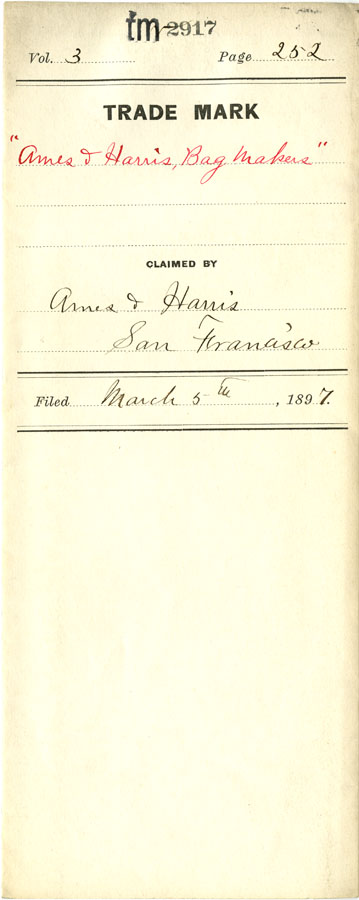 tm-2917
Vol. 3 Page 252
TRADE MARK
"Ames & Harris, Bag Makers"
CLAIMED BY
Ames & Harris
San Francisco
Filed March 5th, 1897.